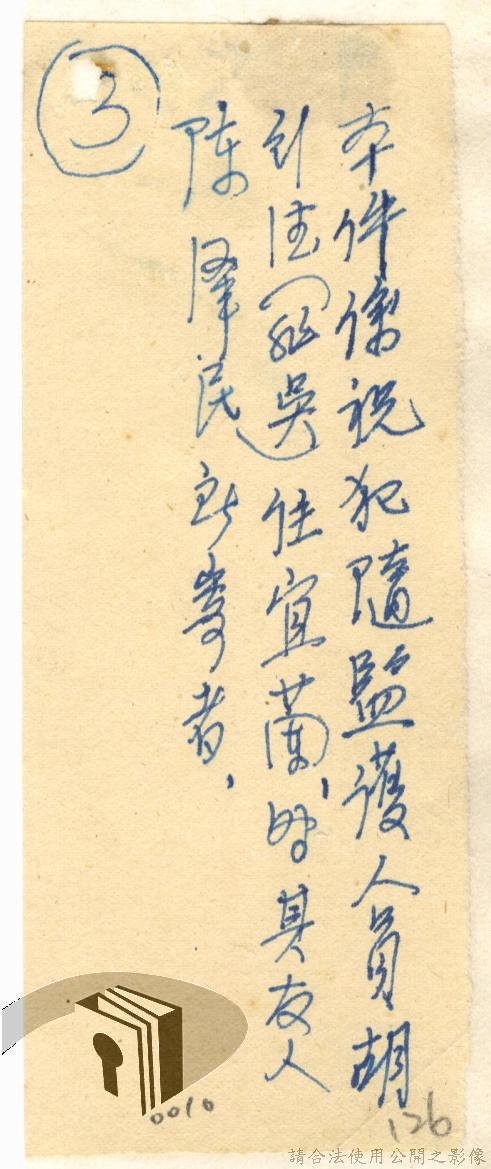 ③
本件係祝犯隨監護人員胡
引住（罪吳）住宜蘭，時其友人
陳澤民所寄者，
0010
126
請合法使用公開之影像